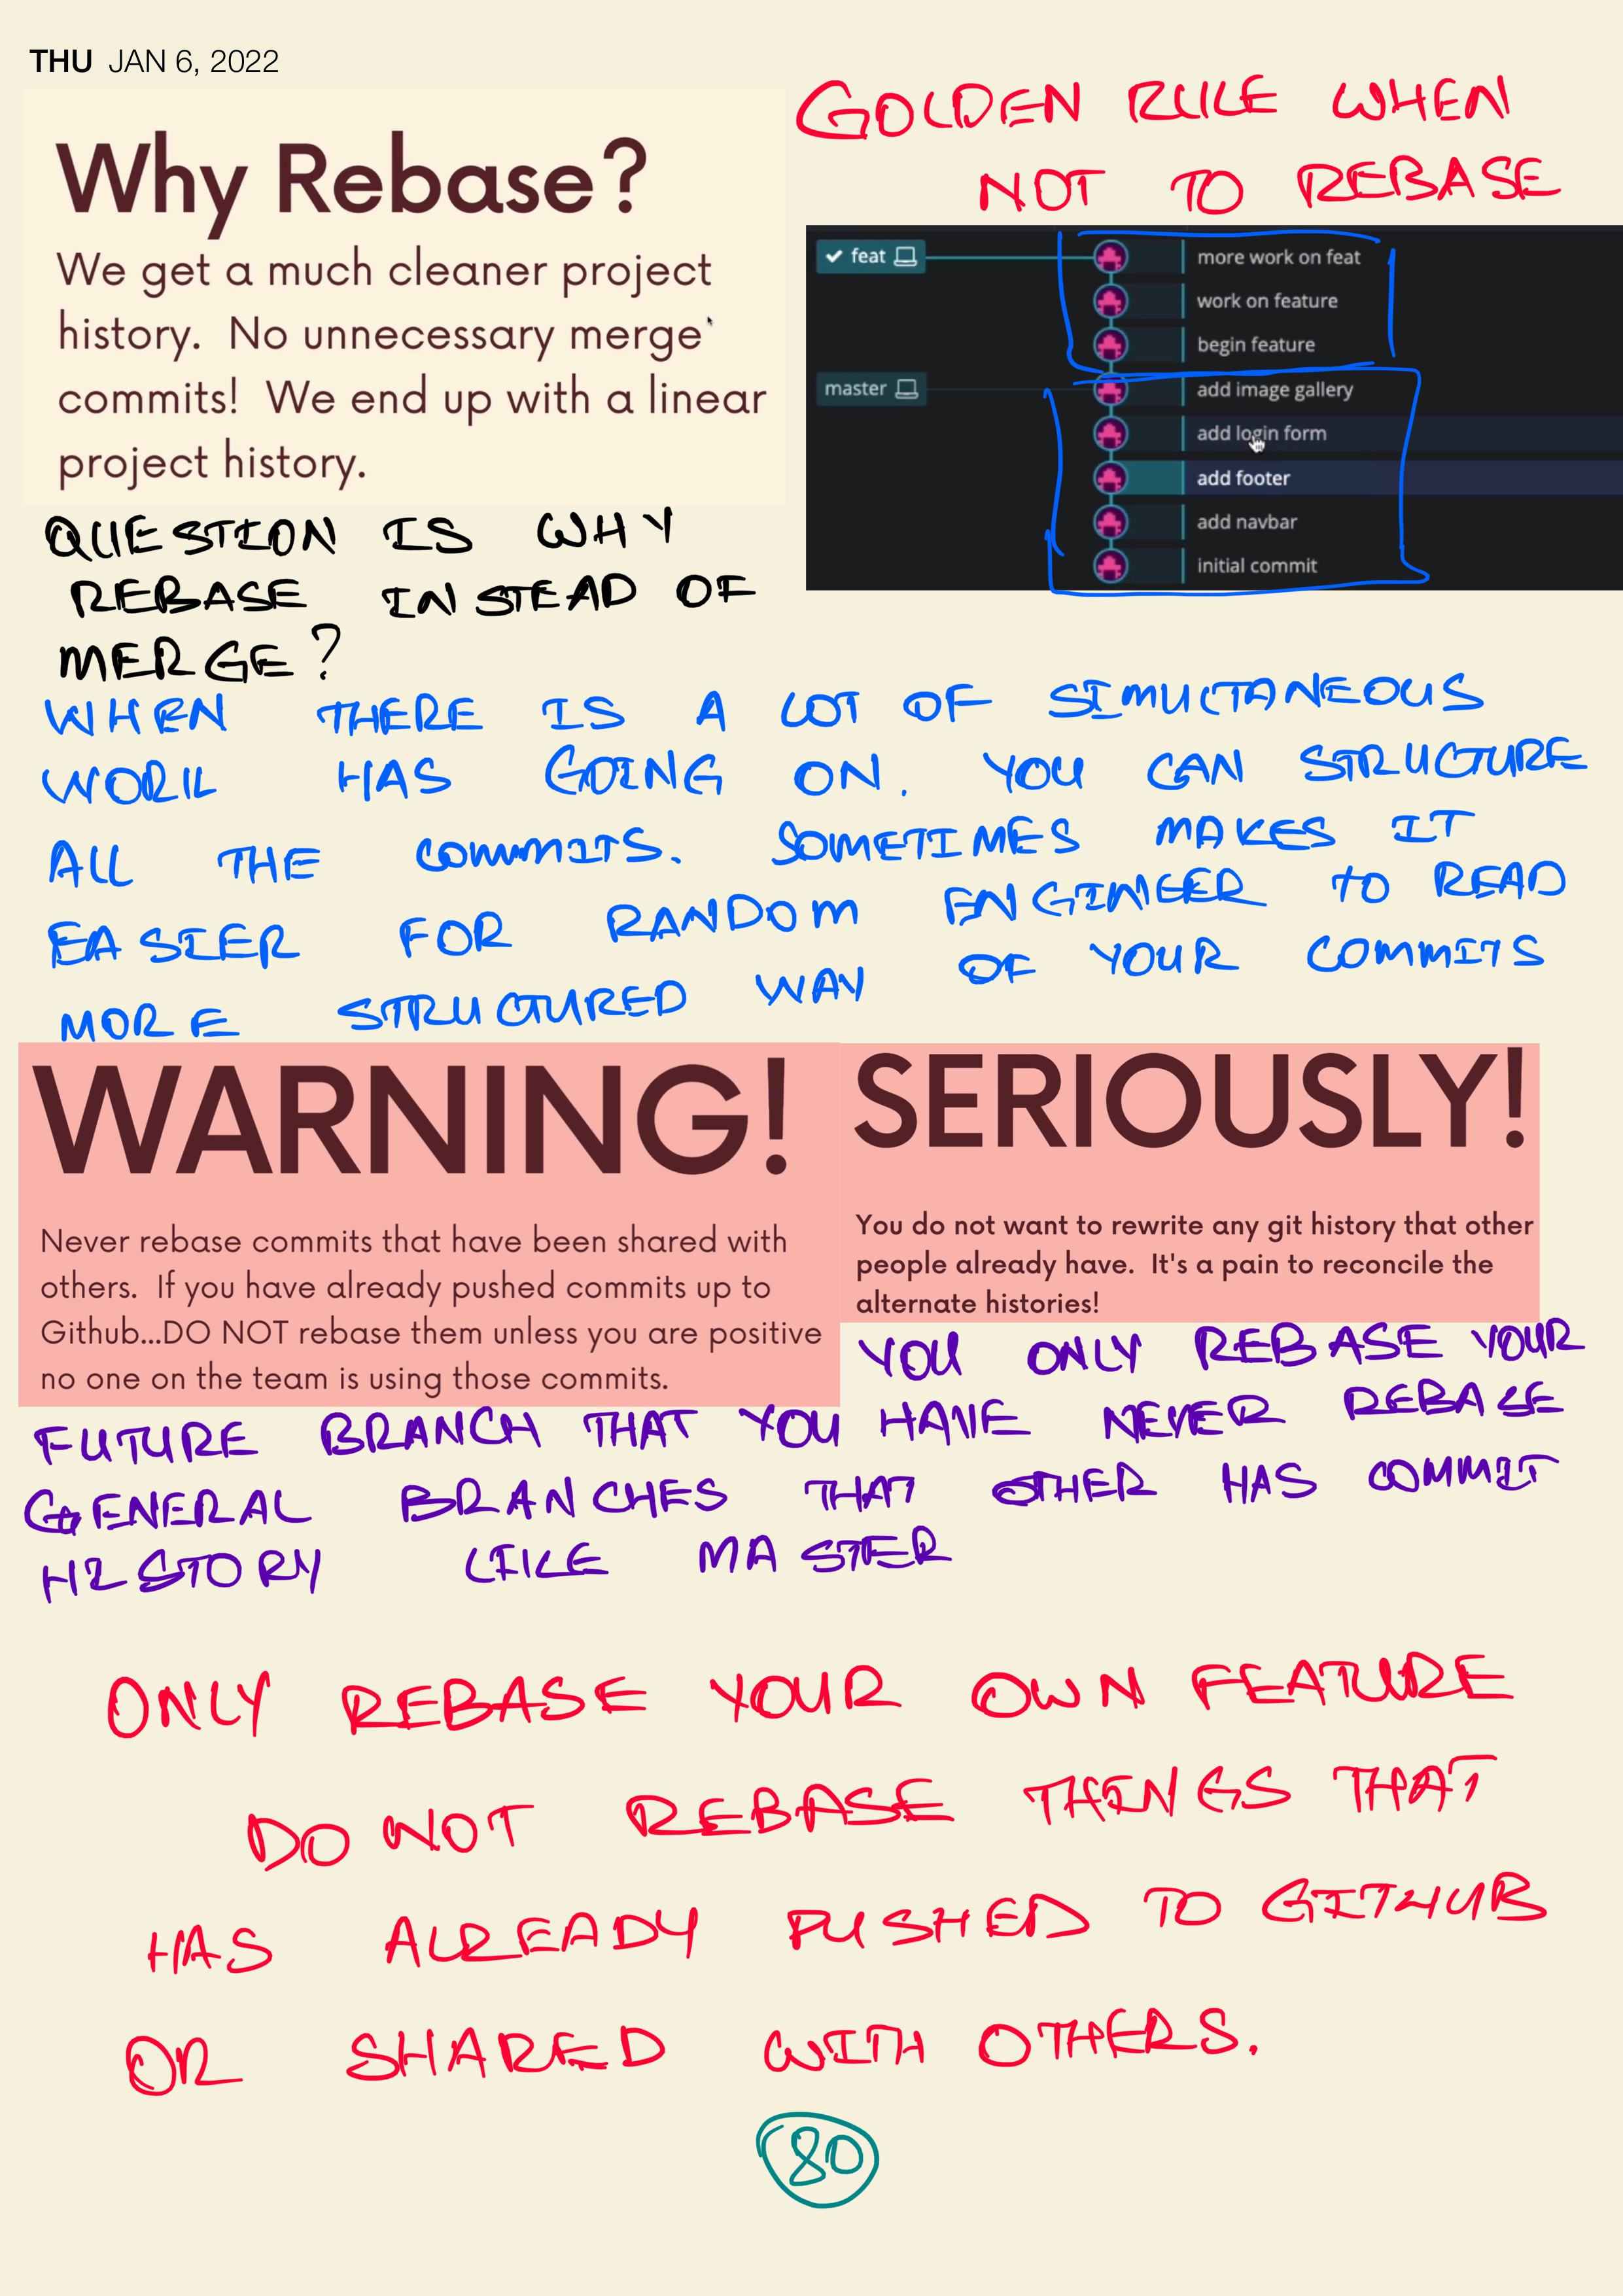 THU JAN 6, 2022
Why Rebase?
We get a much cleaner project
history. No unnecessary merge
commits! We end up with a linear
project history.
GOLDEN RULE WHEN
NOT TO REBASE
feat
more work on feat
work on feature
begin feature
master
add image gallery
add login form
add footer
add navbar
initial commit
QUESTION IS WHY
REBASE INSTEAD OF
MERGE?
WHEN THERE IS A LOT OF SIMULTANEOUS
WORK HAS GOING ON. YOU CAN STRUCTURE
ALL THE COMMITS. SOMETIMES MAKES IT
EASIER FOR RANDOM ENGINEER TO READ
MORE STRUCTURED WAY OF YOUR COMMITS
WARNING!
Never rebase commits that have been shared with
others. If you have already pushed commits up to
Github...DO NOT rebase them unless you are positive
no one on the team is using those commits.
SERIOUSLY!
You do not want to rewrite any git history that other
people already have. It's a pain to reconcile the
alternate histories!
YOU ONLY REBASE YOUR
FUTURE BRANCH THAT YOU HAVE NEVER REBASE
GENERAL BRANCHES THAT OTHER HAS COMMIT
HISTORY LIKE MASTER
ONLY REBASE YOUR OWN FEATURE
DO NOT REBASE THINGS THAT
HAS ALREADY PUSHED TO GITHUB
OR SHARED WITH OTHERS.
80